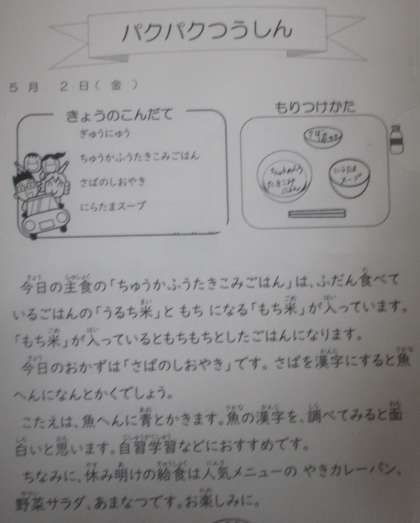 パクパクつうしん
5月 2日(金)
きょうのこんだて
ぎゅうにゅう
ちゅうかふうたきこみごはん
さばのしおやき
にらたまスープ
もりつけかた
さば
ちゅうかふう
たきこみ
ごはん
にらたま
スープ
今日の主食の「ちゅうかふうたきこみごはん」は、ふだん食べて
いるごはんの「うるち米」と もち になる「もち米」が入っています。
「もち米」が入っているともちもちとしたごはんになります。
今日のおかずは「さばのしおやき」です。さばを漢字にすると魚
へんになんとかくでしょう。
こたえは、魚へんに青とかきます。魚の漢字を、調べてみると面
白いと思います。自習学習などにおすすめです。
ちなみに、休み明けの給食は人気メニューの やきカレーパン、
野菜サラダ、あまなつです。お楽しみに。